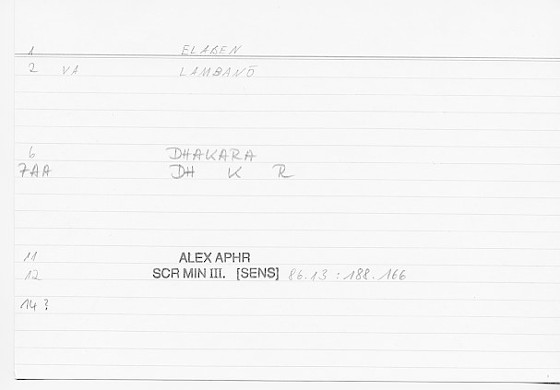 1 ELABEN
2 VA LAMBANŌ
6 DHAKARA
7AA DH K R
11 ALEX APHR
12 SCR MIN III. [SENS] 86.13 : 188.166
14?